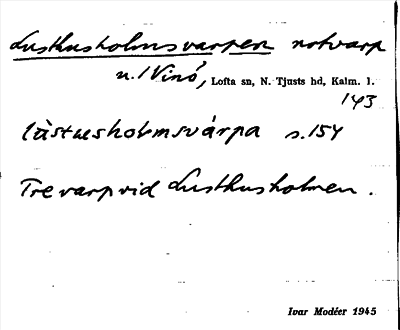 Lusthusholmsvarpen notvarp
u. Vinö, Lofta sn, N. Tjusts hd, Kalm. l.
143
lùstusholmsvárpa s. 154
Tre varp vid Lusthusholmen.
Ivar Modéer 1945